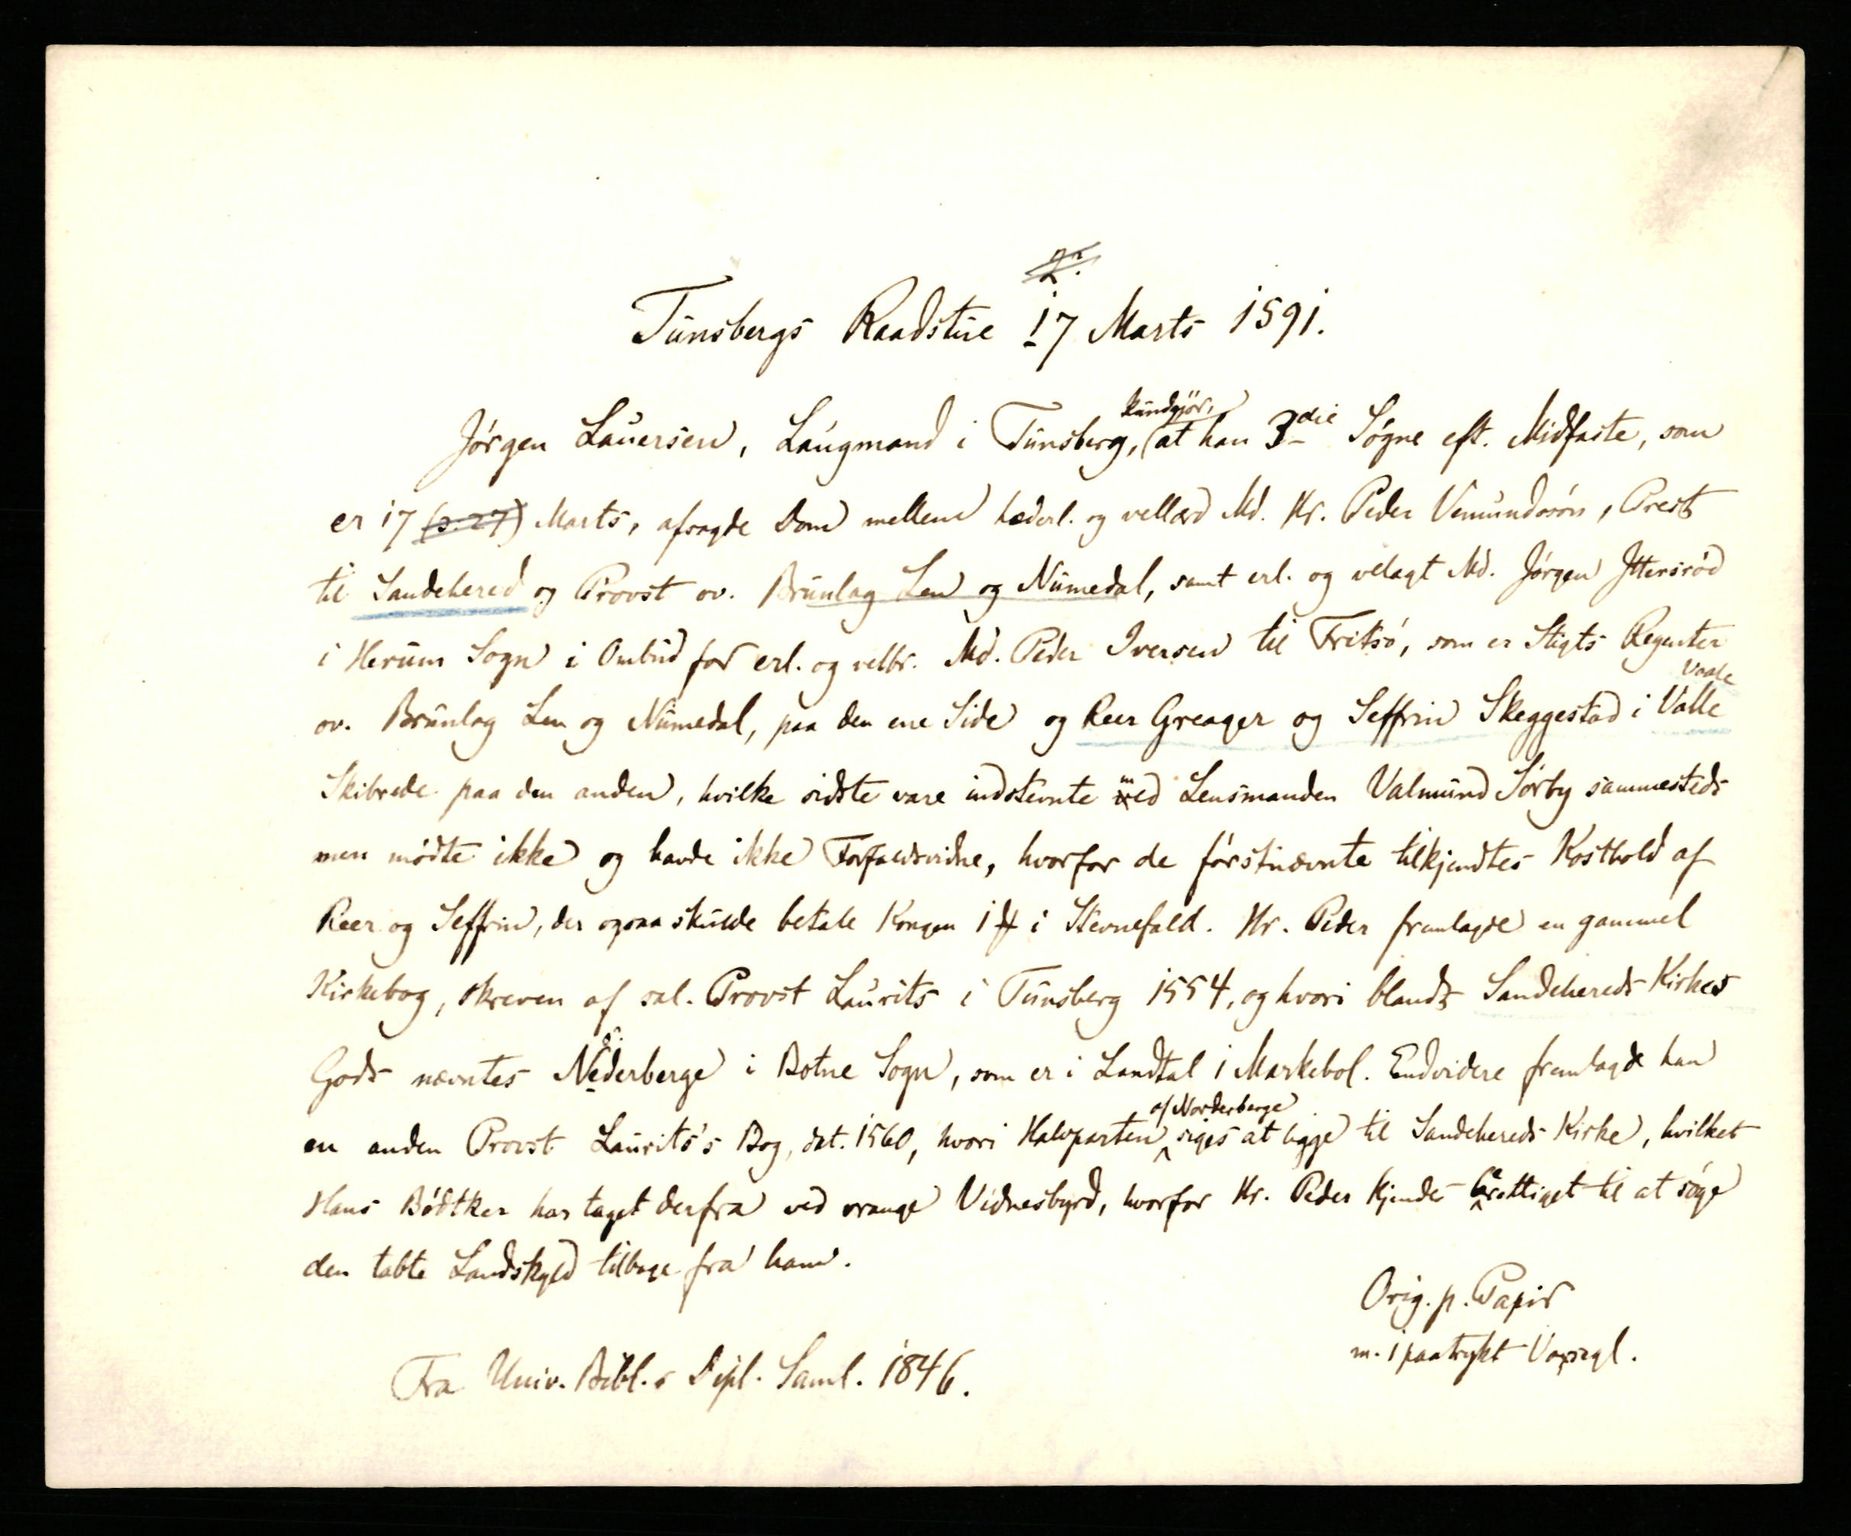 Tunsbergs Raadstue 17 Marts 1591.
Jörgen Lauersen, Laugmand i Tunsberg, kundgjör, at han 3die Sögne eft. Midfaste, som
er 17 (o: 27) Marts, afsagde Dom mellem hæderl. og vellærd Md. Hr. Peder Vemundssön, Prest
til Sandehered og Provst ov. Brunlag Len og Numedal, samt erl. og velagt Md. Jörgen Ittersröd
i Herum Sogn i Ombud for erl. og velbr. Md. Peder Iversen til Fritsö, som er Stigts Regenter
ov. Brunlag Len og Numedal, paa den ene Side og Reer Greager og Seffrin Skeggestad i Valle Vaale
Skibrede paa den anden, hvilke sidste vare indstevnte med Lensmanden Valmund Sörby sammesteds
men mödte ikke og havde ikke Forfaldsvidne, hvorfor de förstnævnte tilkjendtes Kosthold af
Reer og Seffrin, der ogsaa skulde betale Kongen 1 i Stevnefald. Hr. Peder fremlagde en gammel
Kirkebog, skreven af sal. Provst Laurits i Tunsberg 1554, og hvori blandt Sandehereds Kirkes
Gods nævntes Nederberge i Botne Sogn, som er i Landtal 1 Markebol. Endvidere fremlagde han
en anden Provst Laurits's Bog, dat. 1560, hvori Halvparten af Norderberge siges at ligge til Sandehereds Kirke, hvilket
Hans Bödtker har taget derfra ved vrange Vidnesbyrd, hvorfor Hr. Peder kjendes berettiget til at söge
den tabte Landskyld tilbage fra ham.
Orig. p. Papir
m. 1 paatrykt Voxsegl.
Fra Univ. Bibl.s Dipl. Saml. 1846.